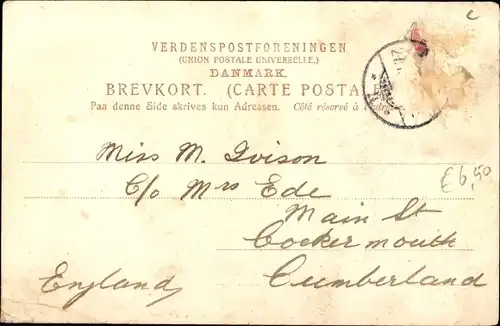 VERDENSPOSTFORENINGEN
(UNION POSTALE UNIVERSELLE.)
DANMARK.
BREVKORT. (CARTE POSTALE
Paa denne Side skrives kun Adressen. Côté réservé à
Miss M. Ivison
C/o Mrs Ede
£6,50
Main St
Cockermouth
England
Cumberland